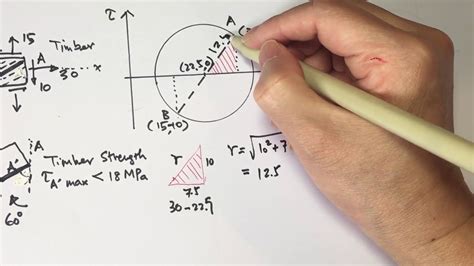 15
Timber
A
30
x
10
τ
A
12.5
(22.5,0)
B
(15,-10)
A
Timber Strength
τA' max < 18 MPa
A'
60°
r
10
7.5
30-22.5
r = √10² + 7
= 12.5